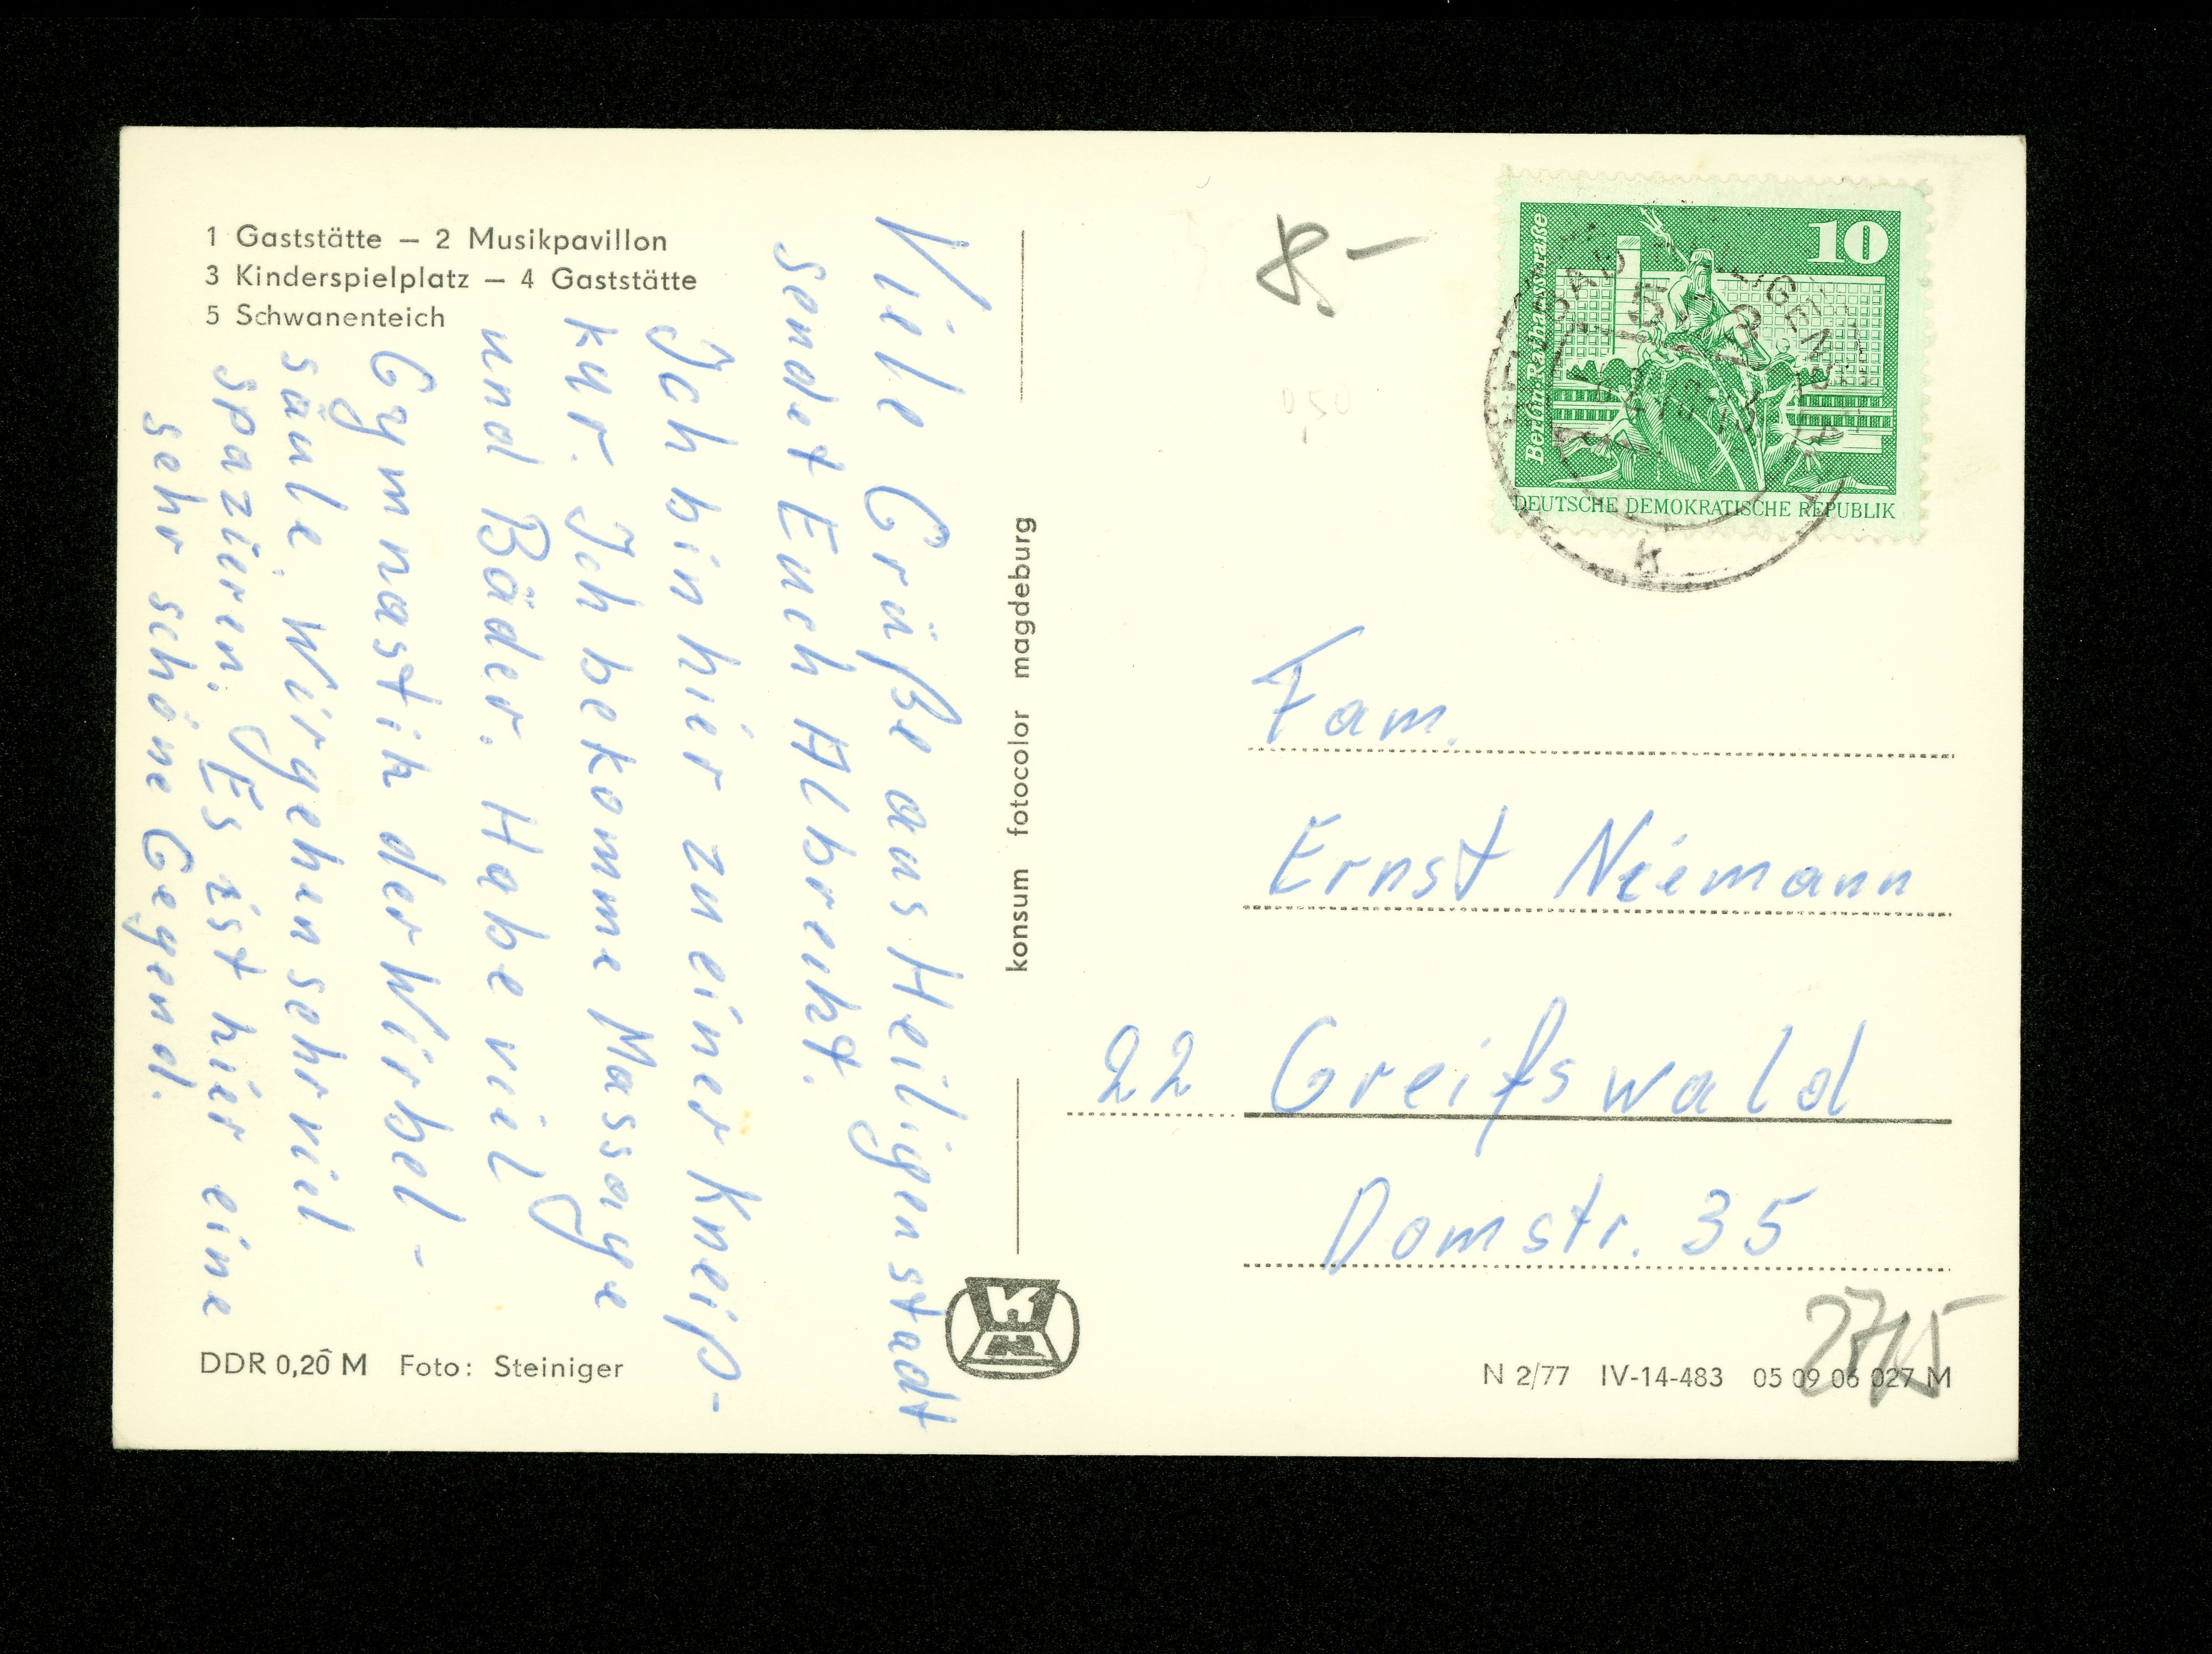 1 Gaststätte – 2 Musikpavillon
3 Kinderspielplatz – 4 Gaststätte
5 Schwanenteich
Viele Grüße aus Heiligenstadt
sendet Euch Albrecht.
Ich bin hier zu einer Kneip-
kur. Ich bekomme Massage
und Bäder. Habe viel
Gymnastik der Wirbel-
säule. Wir gehen sehr viel
spazieren. Es ist hier eine
sehr schöne Gegend.
DDR 0,20 M Foto: Steiniger
konsum fotocolor magdeburg
8.–
10
Berlin, Rathausstraße
DEUTSCHE DEMOKRATISCHE REPUBLIK
k
Fam.
Ernst Niemann
22 Greifswald
Domstr. 35
2715
N 2/77 IV-14-483 05 09 06 027 M